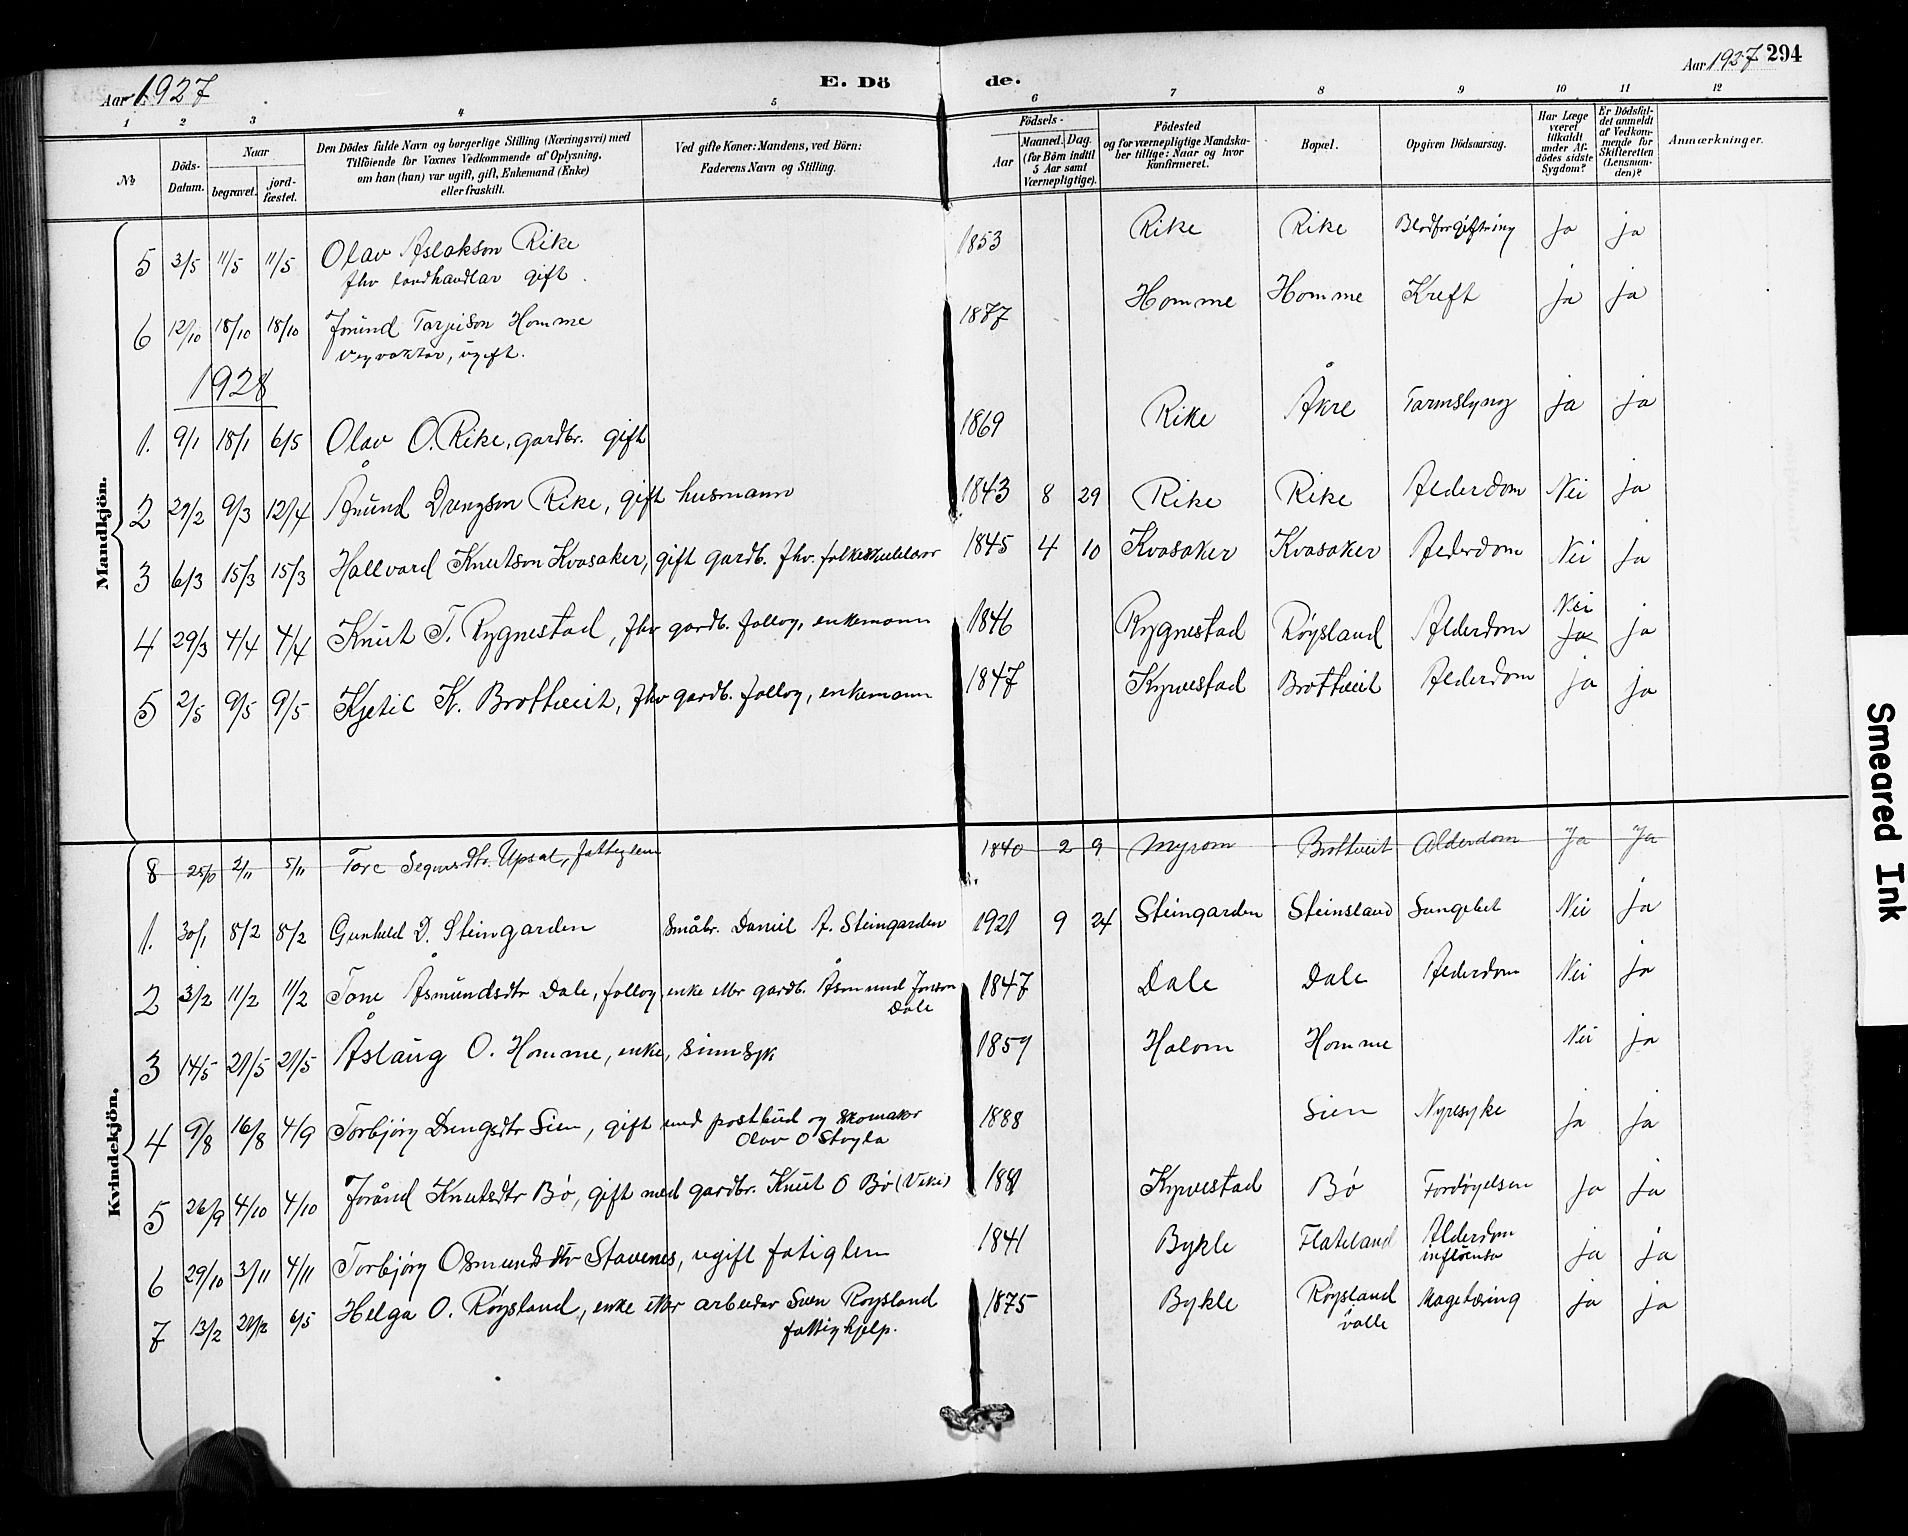 Aar 1927 E. Dö de. Aar 1927 294
1 2 3 4 5 6 7 8 9 10 11 12
№ Döds-Datum. Naar begravet. jord-fæstet. Den Dödes fulde Navn og borgerlige Stilling (Næringsvei) med Tilföiende for Voxnes Vedkommende af Oplysning, om han (hun) var ugift, gift, Enkemand (Enke) eller fraskilt. Ved gifte Koner: Mandens, ved Börn: Faderens Navn og Stilling. Födsels- Aar Maaned. Dag. (for Börn indtil 5 Aar samt Værnepligtige). Födested og for værnepligtige Mandskaber tillige: Naar og hvor konfirmeret. Bopæl. Opgiven Dödsaarsag. Har Læge været tilkaldt under Afdödes sidste Sygdom? Er Dödsfaldet anmeldt af Vedkommende for Skifteretten (Lensmanden)? Anmærkninger.
Mandkjön.
5 3/5 11/5 11/5 Olav Aslakson Rike 1853 Rike Rike Blodforgiftning Ja ja
fhv landhandlar gift.
6 12/10 18/10 18/10 Jorund Tarjeison Homme 1887 Homme Homme Kreft ja ja
vegvaktar, ugift.
1928
1. 9/1 18/1 6/5 Olav O. Rike, gardbr. gift 1869 Rike Åkre Tarmslyng ja ja
2 29/2 9/3 12/4 Ånund Drengson Rike, gift husmann 1843 8 29 Rike Rike Alderdom Nei ja
3 6/3 15/3 15/3 Hallvard Knutson Kvasaker, gift gardb. fhv. folkeskulelærar 1845 4 10 Kvasaker Kvasaker Alderdom Nei ja
4 29/3 4/4 4/4 Knut T. Rygnestad, fhv gardb. follog, enkemann 1846 Rygnestad Røysland Alderdom Nei Ja ja
5 2/5 9/5 9/5 Kjetil K. Brottveit, fhv gardb. follog, enkemann 1847 Kyrvestad Brottveit Alderdom ja ja
Kvindekjön.
8 25/10 2/11 5/11 Tore Segursdtr. Upsal, fattiglem 1840 2 9 Myrom Brottveit Alderdom Ja Ja
1. 30/1 8/2 8/2 Gunhild D. Steingarden Småbr. Daniel A. Steingarden 1921 9 24 Steingarden Steinsland Nei ja
2 3/2 11/2 11/2 Tone Åsmundsdtr Dale, follog, enke etter gardb. Åsmund Jonson 1847 Dale Dale Alderdom Nei ja
Dale
3 14/5 21/5 21/5 Åslaug O. Homme, enke, sinnsyk 1859 Halom Homme Nei ja
4 9/8 16/8 4/9 Torbjørg Drengsdtr Sien, gift med postbud og skomakar 1888 Sien Nyresyke Ja Ja
Olav O Stoyla
5 26/9 4/10 4/10 Jorånd Knutsdtr Bø, gift med gardbr. Knut O Bø (Viki) 1881 Kyrvestad Bø Fordøyelsen Ja Ja
6 29/10 3/11 4/11 Torbjørg Osmundsdtr Stavenes, ugift fatiglem 1841 Bykle Flateland Alderdom influensa ja ja
7 13/2 21/2 6/5 Helga O. Røysland, enke etter arbeidar Svein Røysland 1875 Bykle Røysland i valle Magetæring ja ja
fattighjelp.
Smeared Ink